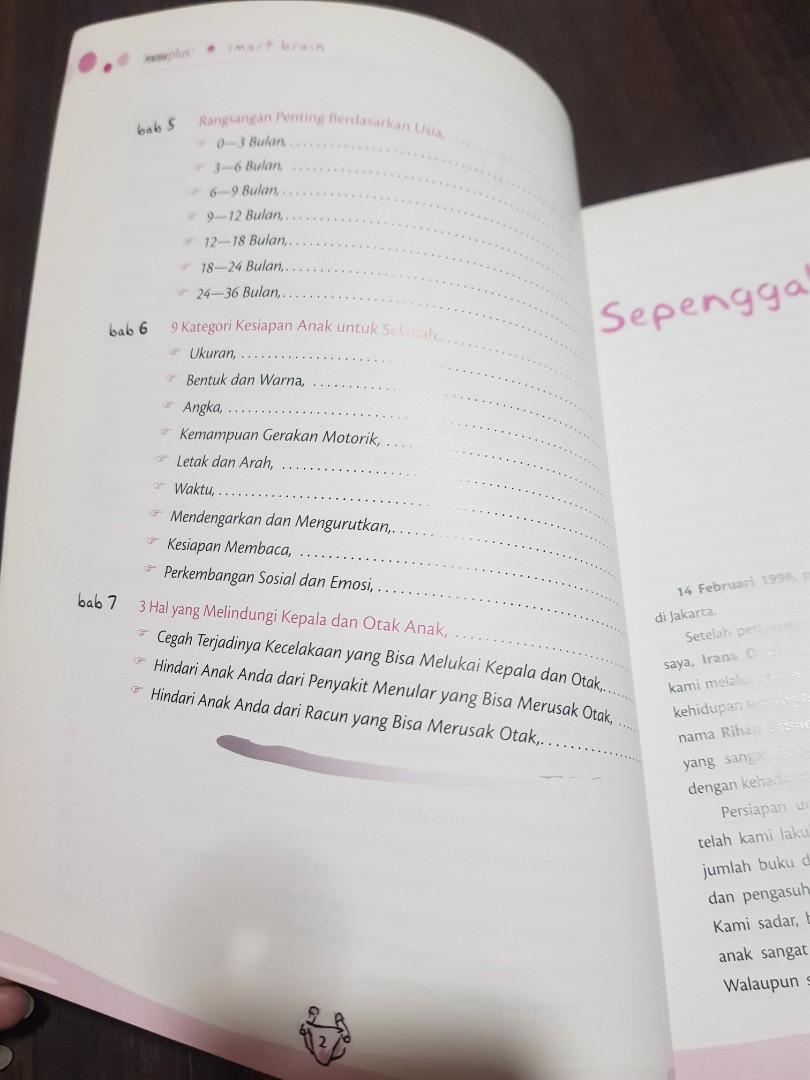 plus • smart brain
bab 5 Rangsangan Penting Berdasarkan Usia,
0—3 Bulan,
3—6 Bulan,
6—9 Bulan,
9—12 Bulan,
12—18 Bulan,
18—24 Bulan,
24—36 Bulan,
bab 6 9 Kategori Kesiapan Anak untuk Sekolah,
Ukuran,
Bentuk dan Warna,
Angka,
Kemampuan Gerakan Motorik,
Letak dan Arah,
Waktu,
Mendengarkan dan Mengurutkan,
Kesiapan Membaca,
Perkembangan Sosial dan Emosi,
bab 7 3 Hal yang Melindungi Kepala dan Otak Anak,
Cegah Terjadinya Kecelakaan yang Bisa Melukai Kepala dan Otak,
Hindari Anak Anda dari Penyakit Menular yang Bisa Merusak Otak,
Hindari Anak Anda dari Racun yang Bisa Merusak Otak,
2
Sepenggal
14 Februari 1998,
di Jakarta.
Setelah
saya, Irana
kami
kehidupan
nama
yang
dengan
Persiapan
telah kami
jumlah buku
dan
Kami sadar,
anak sangat
Walaupun